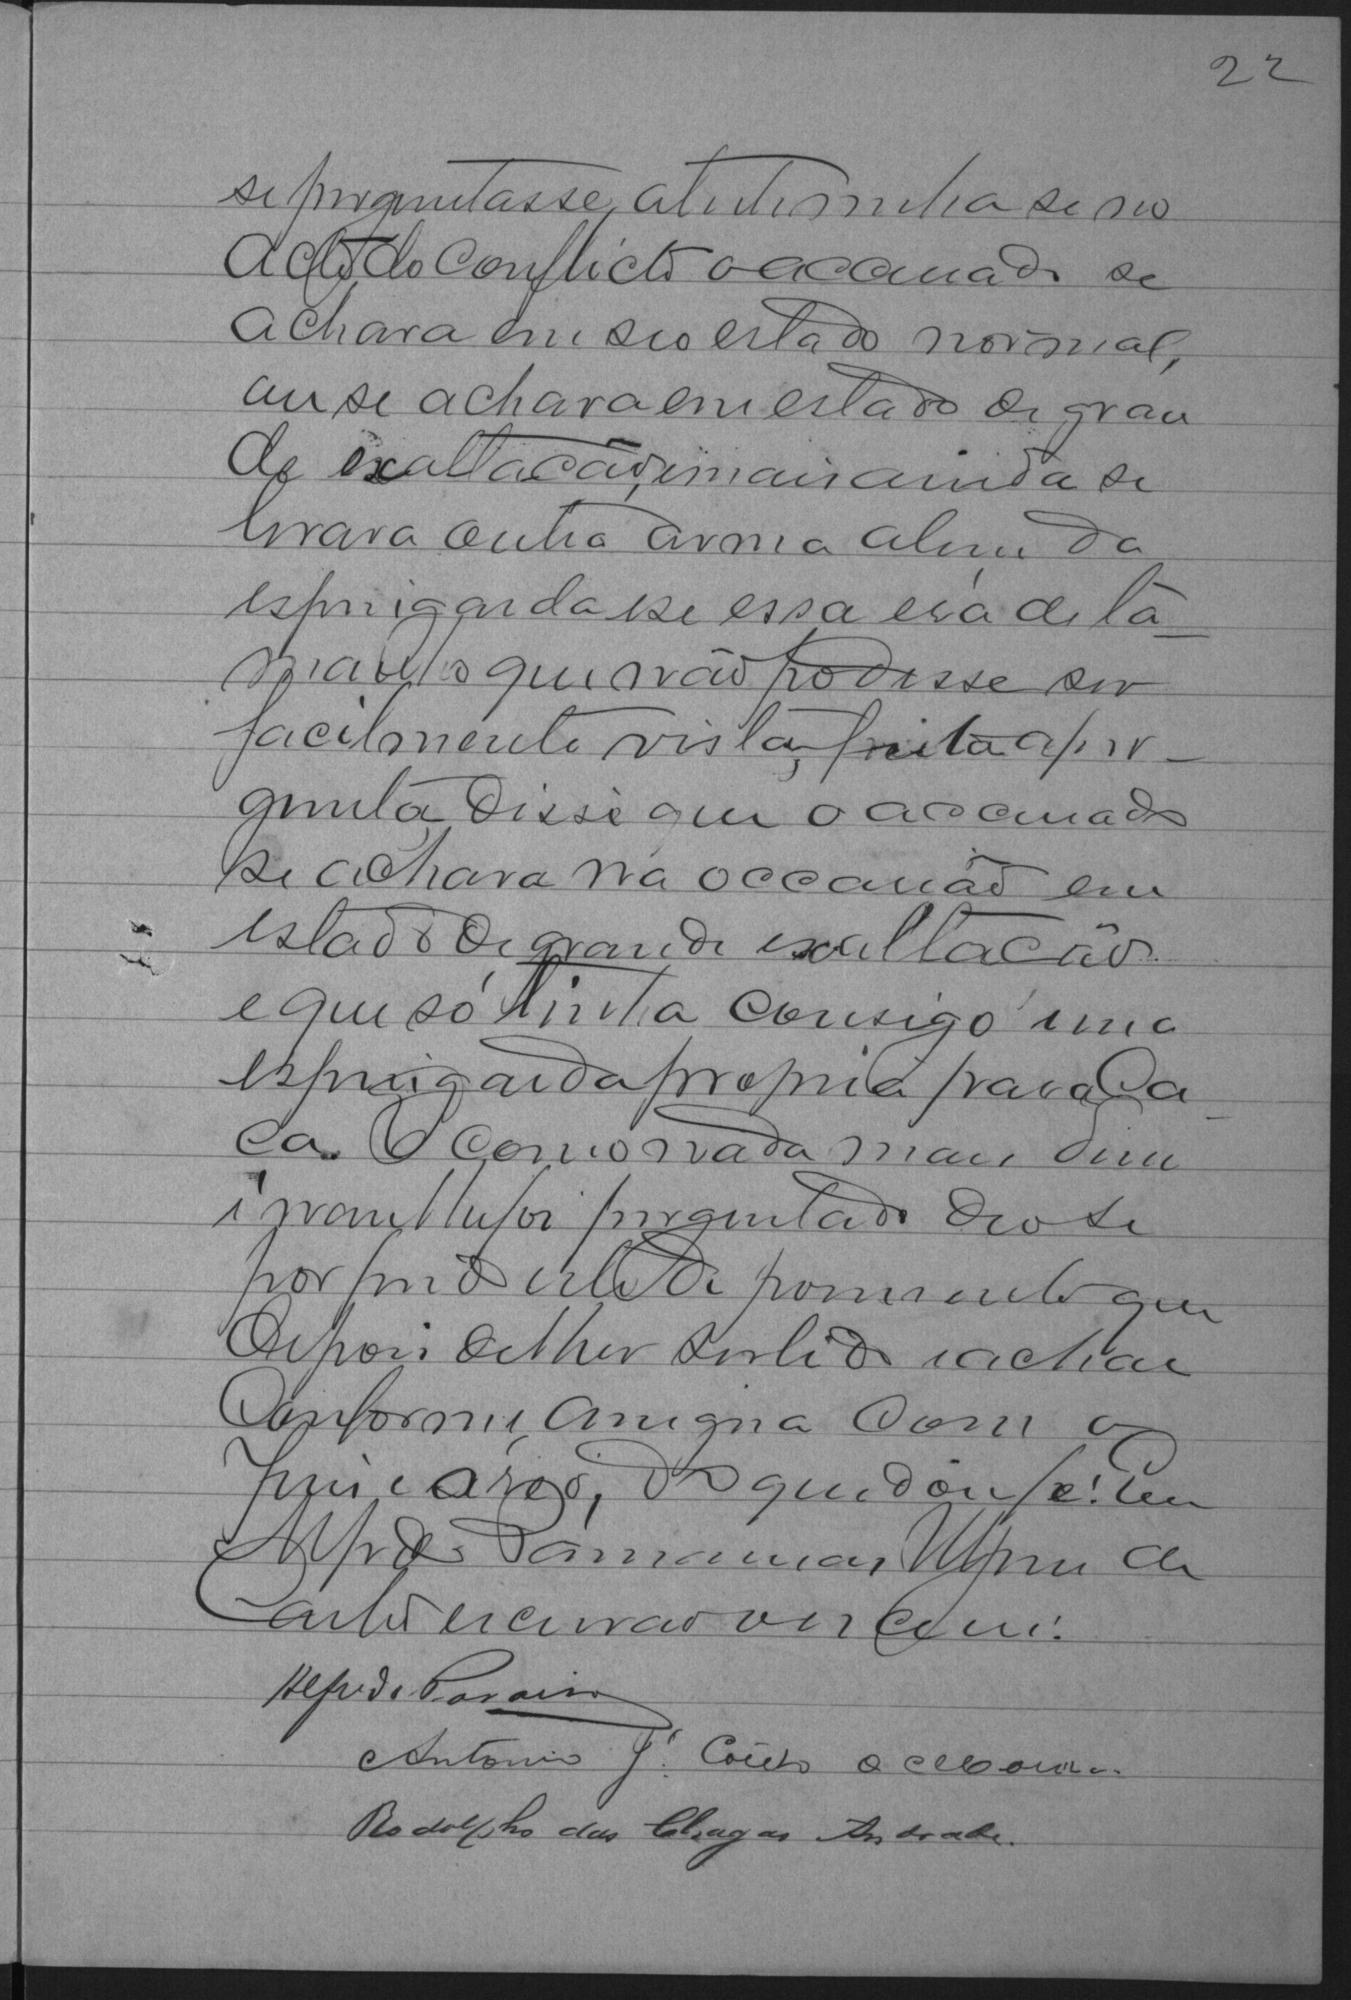 22
se perguntasse a testemunha se no
acto do conflicto o accusado se
achava em seo estado normal,
ou se achava em estado de gran
de exaltacão, e mais ainda se
levava outra arma alem da
espingarda e se essa era de ta-
manho que não podesse ser
facilmente vista, feita a per-
gunta, disse que o accusado
se achava na occasião em
estado de grande exaltacão
e que só tinha consigo uma
espingarda propria para ca-
ca. E como nada mais disse
nem lhe foi perguntado deo se
por findo este depoimento que
depois de lher ser lido e achar
conforme, assigna com o
Juiz e o réo, do que dou fé. Eu
Alfredo de
Castro escrivão o escrevi.
Alfredo
Antonio J. Couto
Rodolpho das Chagas Andrade.